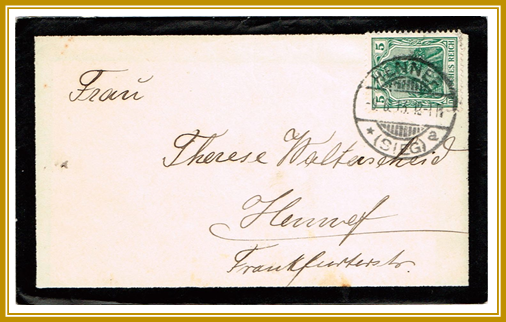 5
5
DEUTSCHES REICH
HENNEF
12-1N
* (SIEG) a
Frau
Therese Walterscheid
Hennef
Frankfurterstr.